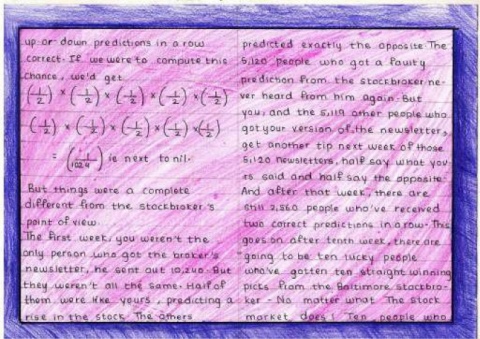 up or down predictions in a row
correct. If we were to compute this
chance, we'd get
(1/2) × (1/2) × (1/2) × (1/2) × (1/2)
(1/2) × (1/2) × (1/2) × (1/2) × (1/2)
= (1/1024) is next to nil.
But things were a complete
different from the stockbroker's
point of view.
The first week, you weren't the
only person who got the broker's
newsletter, he sent out 10,240. But
they weren't all the same. Half of
them were like yours, predicting a
rise in the stock. The others
predicted exactly the opposite. The
5,120 people who got a faulty
prediction from the stockbroker ne-
ver heard from him again. But
you, and the 5,119 other people who
got your version of the newsletter,
get another tip next week. Of those
5,120 newsletters, half say what you-
rs said and half say the opposite.
And after that week, there are
still 2,560 people who've received
two correct predictions in a row. This
goes on after tenth week, there are
going to be ten lucky people
who've gotten ten straight winning
picks from the Baltimore stockbro-
ker - No matter what the stock
market does! Ten people who